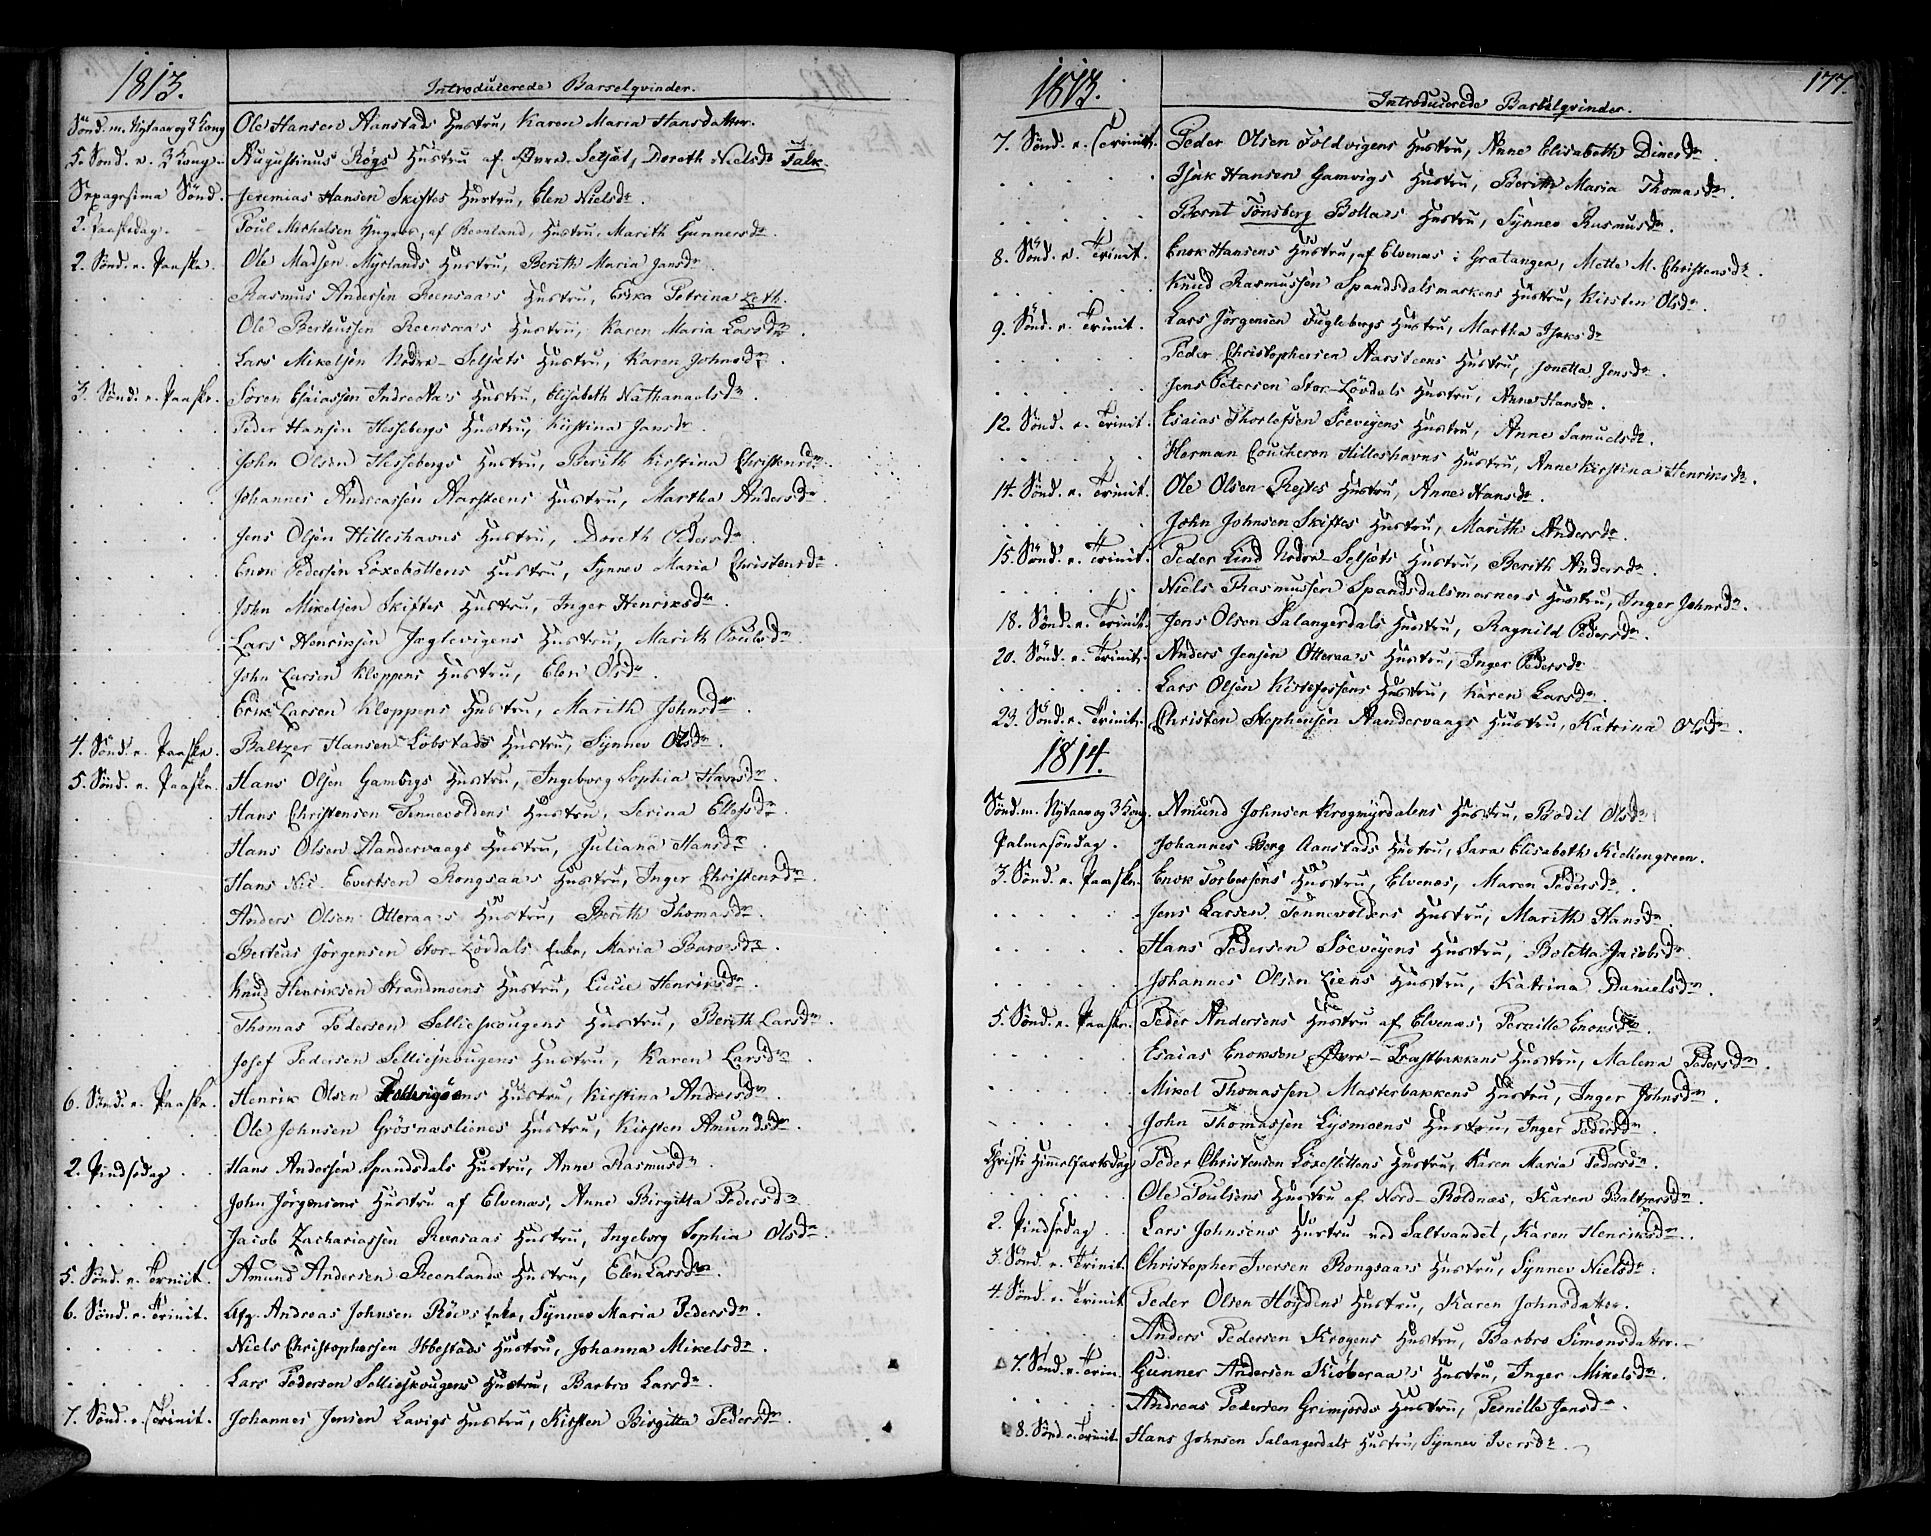 1813.
Introducerede Barselqvinder.
Sönd. m. Nytaar og 3 Kong Ole Hansen Aanstads Hustru, Karen Maria Hansdatter.
5. Sönd. e. 3 Kong. Augustinus Rögs Hustru af Øvre-Seljæt, Doreth Nielsdr Falk.
Sexagesima Sönd. Jeremias Hansen Skiftes Hustru, Elen Nielsdr.
2. Paaskedag. Poul Michelsen af Reenland, Hustru, Marith Gunnersdr.
2. Sönd. e. Paaske. Ole Madsen Myrlands Hustru, Berith Maria Jansdr
Rasmus Andersen Reensaa's Hustru, Erika Petrina Leth.
Ole Berteussen Reensaa's Hustru, Karen Maria Larsdr.
Lars Mikelsen Nedre-Seljæts Hustru, Karen Johnsdr.
3. Sönd. e. Paaske. Sören Esaiassen Indre Aa's Hustru, Elisabeth Nathanaelsdr.
Peder Hansen Hesjebergs Hustru, Kirstina Jansdr.
John Olsen Hessebergs Hustru, Berith Kirstina Christensdr.
Johannes Andreassen Aarsteens Hustru, Martha Andersdr.
Jens Olsen Hilleshavns Hustru, Doreth Pedersdr.
Enok Pedersen Löxebottens Hustru, Synnev Maria Christensdr.
John Mikelsen Skiftes Hustru, Inger Henriksdr.
Lars Henriksen Jæglevigens Hustru, Marith Poulsdr.
John Larsen Kloppens Hustru, Elen Olsdr.
Erik Larsen Kloppens Hustru, Marith Johnsdr.
4. Sönd. e. Paaske. Baltzer Hansen Löbstads Hustru, Synnev Olsdr.
5. Sönd. e. Paaske. Hans Olsen Gamvigs Hustru, Ingeborg Sophia Hansdr.
Hans Christensen Tennevoldens Hustru, Serina Ellefsdr.
Hans Olsen Aandervaags Hustru, Juliana Hansdr.
Hans Nic. Evertsen Rongsaa's Hustru, Inger Christensdr.
Anders Olsen Otteraa's Hustru, Berith Thomasdr.
Berteus Jörgensen Stor-Lövdals Enke, Maria Baro'sdr.
Knud Henriksen Strandmoens Hustru, Lucie Henriksdr.
Thomas Pedersen Sellieskougens Hustru, Berith Larsdr.
Josef Pedersen Sellieskougens Hustru, Karen Larsdr.
6. Sönd. e. Paaske. Henrik Olsen Hustru, Kirstina Andersdr.
Ole Johnsen Grösnæslienes Hustru, Kirsten Amundsdr.
2. Pindsedag. Hans Andersen Spandsdals Hustru, Anne Rasmusdr.
John Jörgensens Hustru af Elvenæs, Anne Birgitta Pedersdr.
Jacob Zachariassen Reensaas Hustru, Ingeborg Sophia Olsdr.
5. Sönd. e. Trinit. Amund Andersen Reenlands Hustru, Elen Larsdr.
6. Sönd. e. Trinit. Afg. Andreas Johnsen Röe's Enke, Synnev Maria Pedersdr.
Niels Christophersen Ibbestads Hustru, Johanna Mikelsdr.
Lars Pedersen Sellieskougens Hustru, Barbro Larsdr.
7. Sönd. e. Trinit. Johannes Jensen Lavigs Hustru, Kirsten Birgitta Pedersdr.
1813.
Introducerede Barselqvinder.
177
7. Sönd. e. Trinit. Peder Olsen Foldvigens Hustru, Anne Elisabeth Dinesdr.
Isak Hansen Gamvigs Hustru, Berith Maria Thomasdr.
Bernt Tönsberg Bolla's Hustru, Synnev Rasmusdr.
8. Sönd. e. Trinit. Enok Hansens Hustru, af Elvenæs i Gratangen, Mette M. Christensdr.
Knud Rasmussen Spandsdalsmarkens Hustru, Kirsten Olsdr.
9. Sönd. e. Trinit. Lars Jörgensen Fuglebergs Hustru, Martha Isaksdr
Peder Christophersen Aarsteens Hustru, Jonetta Jensdr.
Jens Petersen Stor-Lövdals Hustru, Anne Hansdr.
12. Sönd. e. Trinit. Esaias Thorlefsen Söevejens Hustru, Anne Samuelsdr.
Herman Coucheron Hilleshavns Hustru, Anne Kirstina Henriksdr.
14. Sönd. e. Trinit. Ole Olsen Röjtes Hustru, Anne Hansdr.
John Johnsen Skiftes Hustru, Marith Andersdr.
15. Sönd. e. Trinit. Peder Lind Nedre Seljæts Hustru, Berith Andersdr.
Niels Rasmussen Spandsdalsmarkens Hustru, Inger Johnsdr.
18. Sönd. e. Trinit. Jens Olsen Salangerdals Hustru, Ragnild Pedersdr.
20. Sönd. e. Trinit. Anders Jensen Otteraa's Hustru, Inger Pedersdr
Lars Olsen Kistefossens Hustru, Karen Larsdr.
23. Sönd. e. Trinit. Christen Stephensen Aandervaags Hustru, Katrina Olsdr.
1814.
Sönd. m. Nytaar og 3 Kong. Amund Johnsen Krogmyrdalens Hustru, Bodil Olsdr
Palmesöndag. Johannes Berg Aanstads Hustru, Sara Elisabeth Kiellengreen.
3. Sönd. e. Paaske. Enok Torbersens Hustru, Elvenæs, Maren Pedersdr.
Jens Larsen Tennevoldens Hustru, Marith Hansdr.
Hans Pedersen Söevejens Hustru, Boletta Jacobsdr
Johannes Olsen Liens Hustru, Katrina Danielsdr.
5. Sönd. e. Paaske. Peder Andersens Hustru af Elvenæs, Pernille Enoksdr.
Esaias Enoksen Øvre-Præstbakkens Hustru, Malena Pedersdr.
Mikel Thomassen Masterbakkens Hustru, Inger Johnsdr.
John Thomassen Lysmoens Hustru, Inger Pedersdr.
Christi Himmelfartsdag Peder Christensen Löxeslettens Hustru, Karen Maria Pedersdr.
Ole Poulsens Hustru af Nord-Roldnæs, Karen Baltzersdr
2. Pindsedag Lars Johnsens Hustru ved Saltvandet, Karen Henriksdr.
3. Sönd. e. Trinit. Christopher Iversen Rongsaa's Hustru, Synnev Nielsdr.
4. Sönd. e. Trinit Peder Olsen Höydens Hustru, Karen Johnsdatter.
Anders Pedersen Krogens Hustru, Barbro Simonsdatter.
7. Sönd. e. Trin. Gunner Andersen Kioberaa's Hustru, Inger Mikelsdr.
Andreas Pedersen Grimjords Hustru, Pernille Jensdr.
8. Sönd. e. Trinit. Hans Johnsen Salangerdals Hustru, Synnev Iversdr.